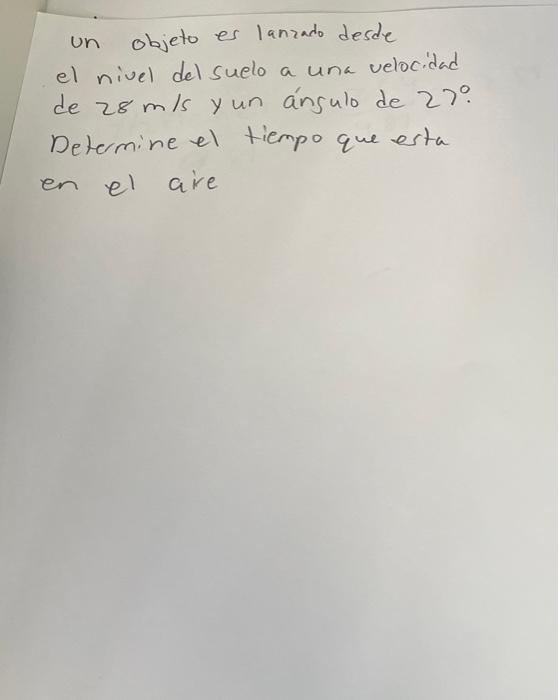 un objeto es lanzado desde
el nivel del suelo a una velocidad
de 28 m/s y un ángulo de 27°.
Determine el tiempo que esta
en el aire